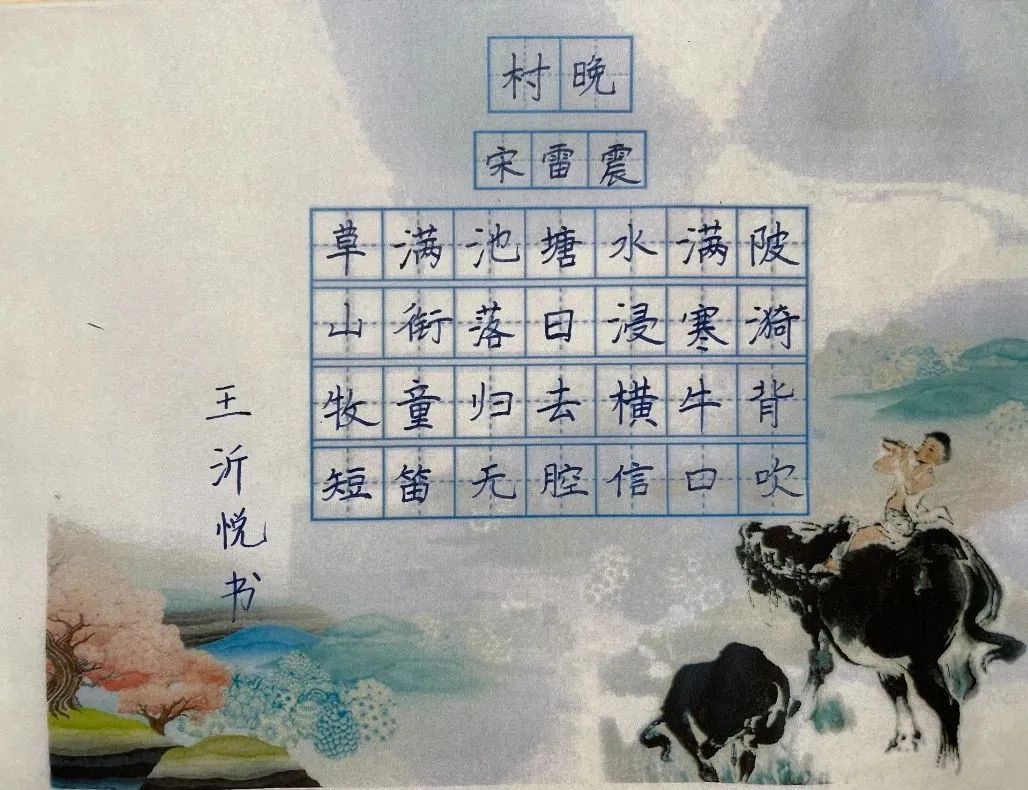 村晚
宋雷震
草满池塘水满陂
山衔落日浸寒漪
牧童归去横牛背
短笛无腔信口吹
王沂悦书